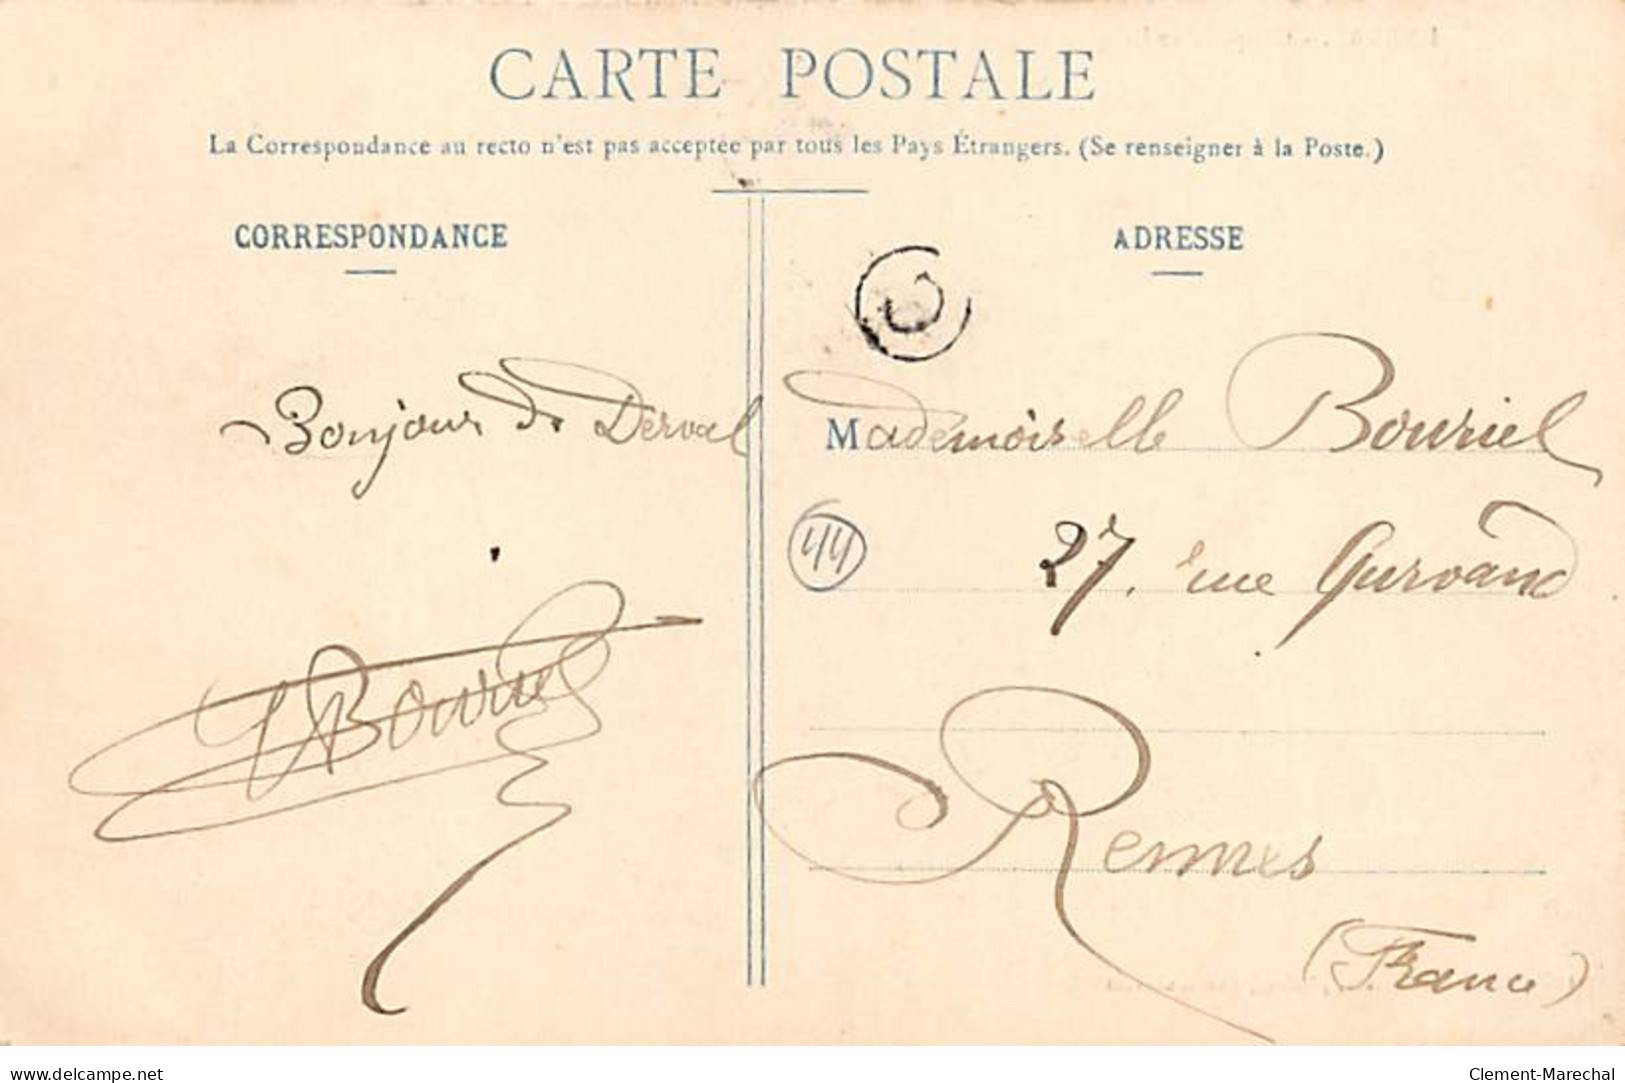 CARTE POSTALE
La Correspondance au recto n'est pas acceptée par tous les Pays Étrangers. (Se renseigner à la Poste.)
CORRESPONDANCE
Bonjour de Derval
Bouriel
ADRESSE
Mademoiselle Bouriel
44
27, rue Gurvand
Rennes
(France)
www.delcampe.net
Clement-Marechal